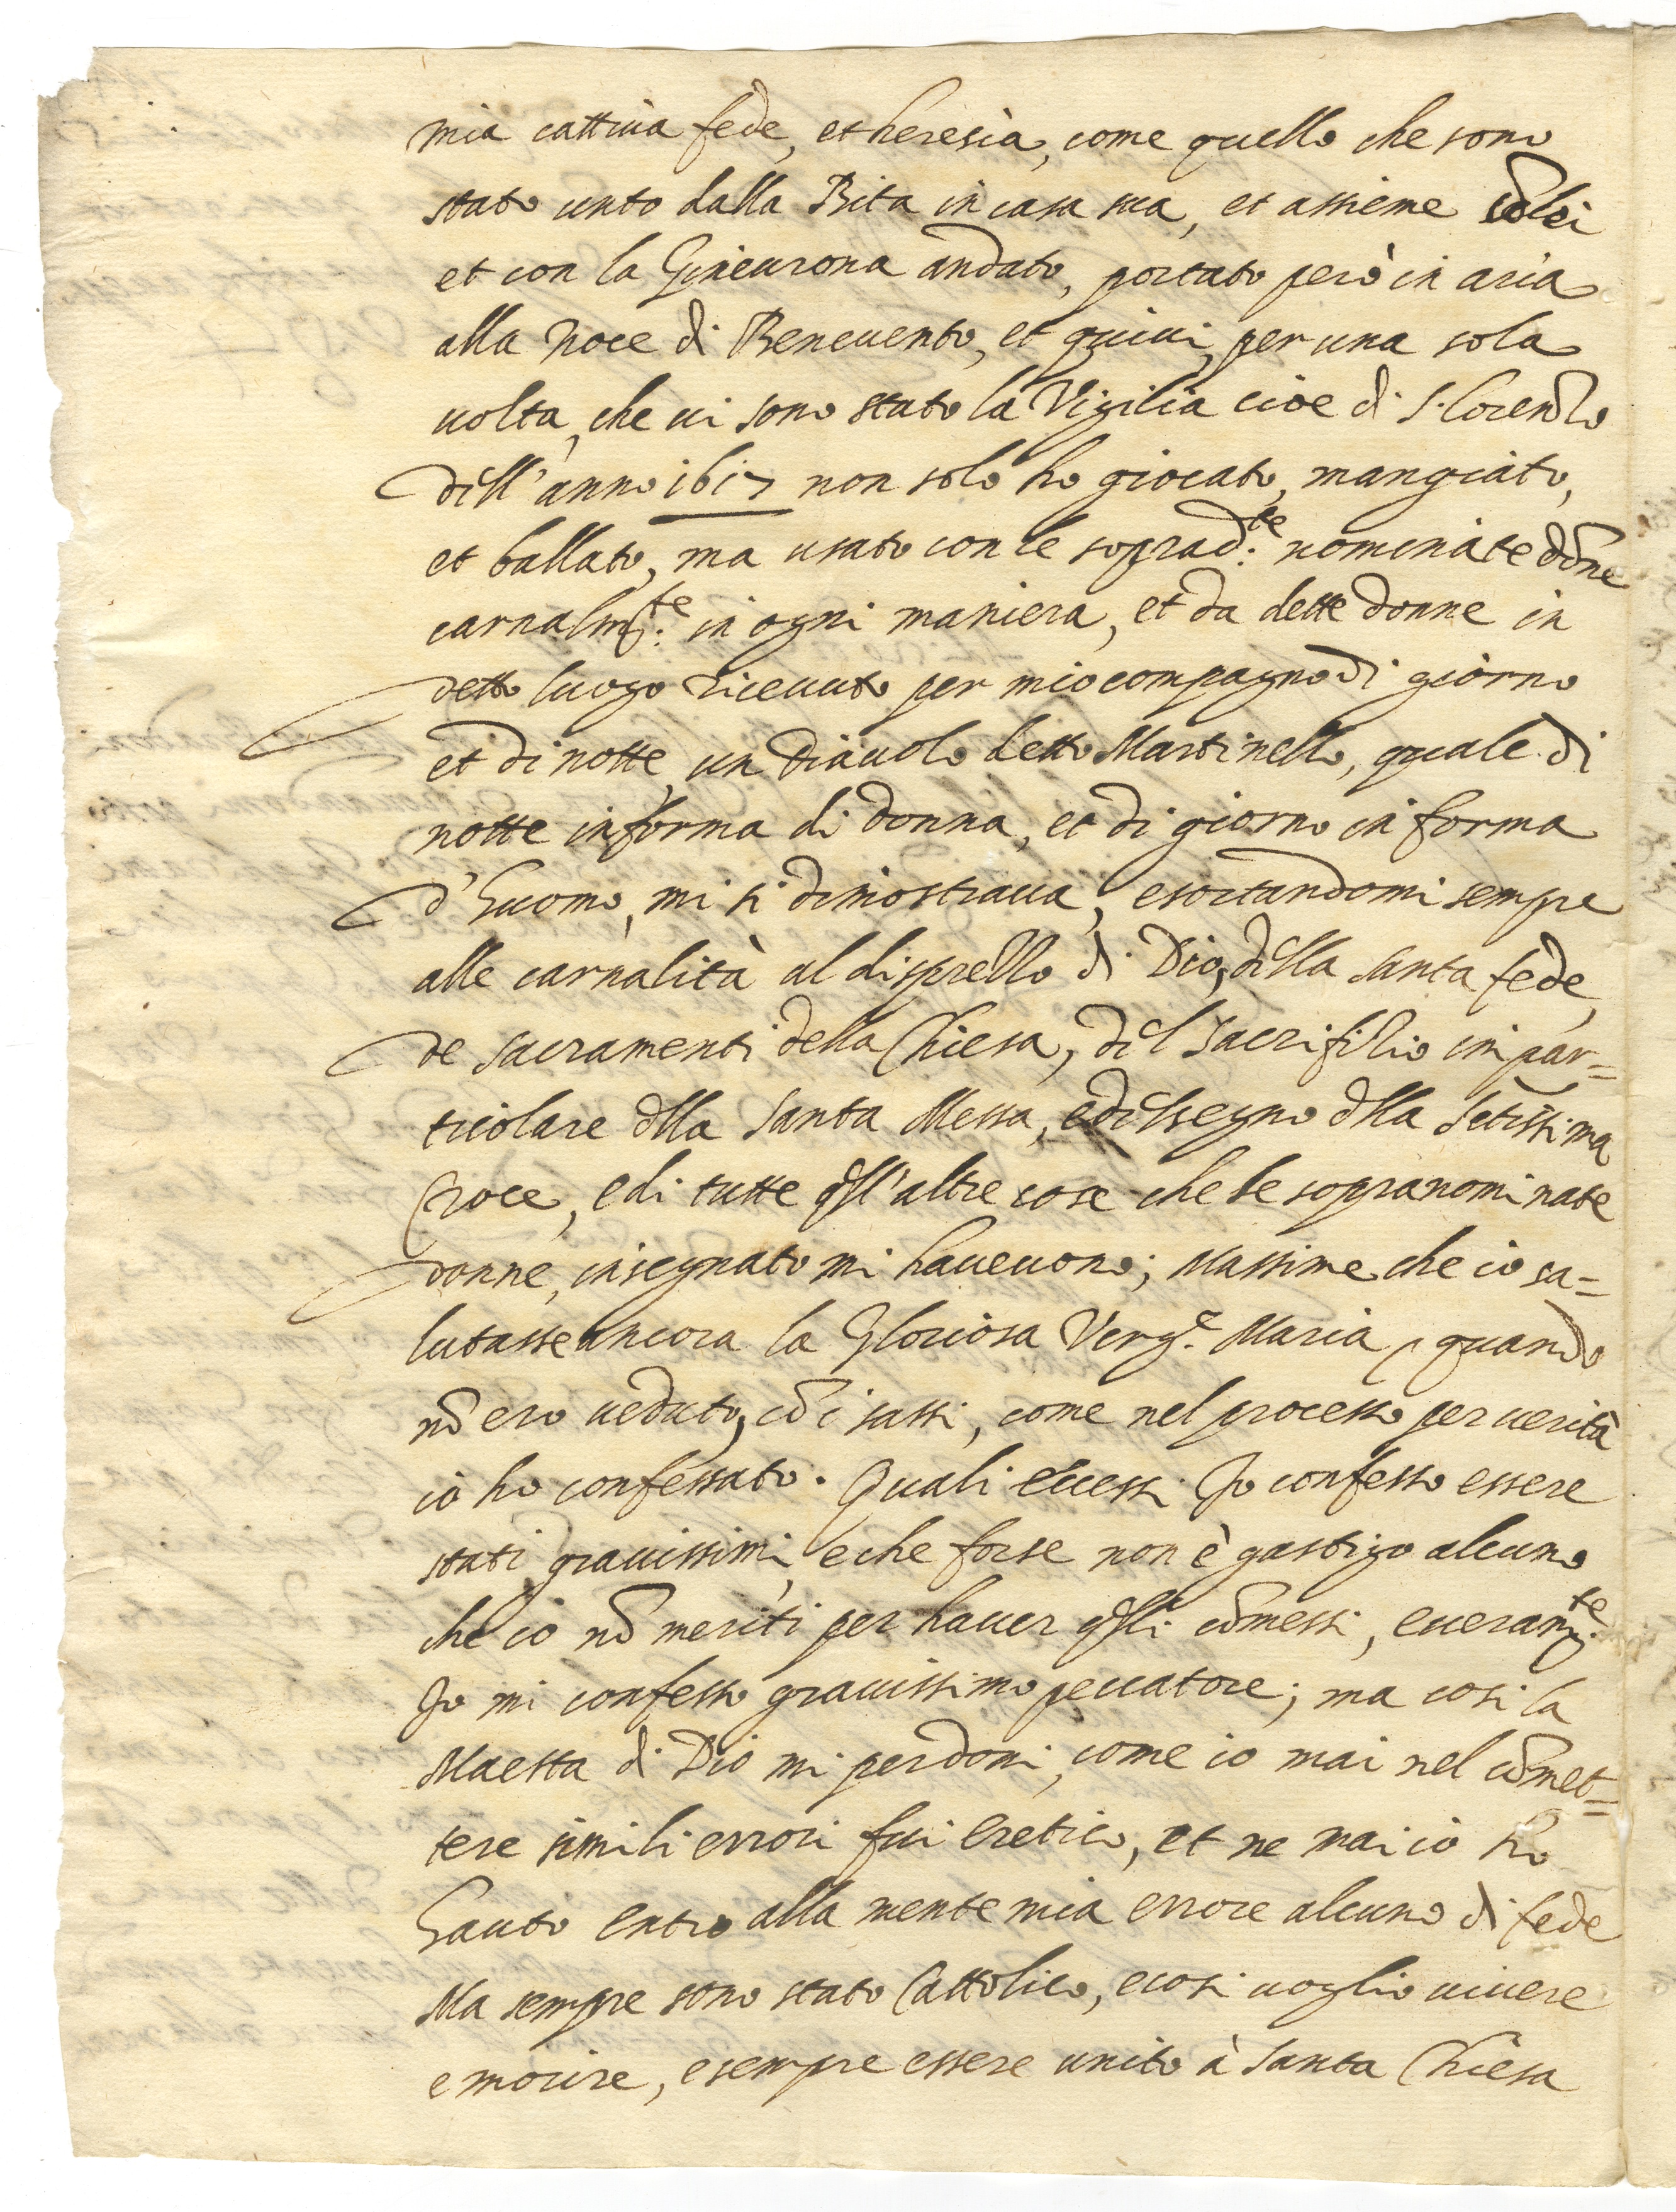 mia cattiua fede, et heresia, come quello che sono
stato unto dalla Bita in casa sua, et assieme cō lei
et con la Gineurona andato, portato però in aria
alla Noce di Beneuento, et quiui, per una sola
uolta, che ui sono stato la Vigilia cioe di S. Lorenzo
dell'anno 1617 non solo ho giocato, mangiato,
et ballato, ma usato con le soprad.te nominate dōne
carnalm.te in ogni maniera, et da dette donne in
detto luogo riceuuto per mio compagno di giorno
et di notte, un diauolo detto Martinello, quale di
notte in forma di donna, et di giorno in forma
d'huomo, mi si dimostraua, esortandomi sempre
alle carnalità al disprezzo di Dio, della santa fede,
de sacramenti della Chiesa, del sacrifitio in par=
ticolare dlla Santa Messa, e del segno dlla Sētissima
Croce, e di tutte qll'altre cose che le sopranominate
donne, insegnato mi haueuono; Massime che io sa=
lutasse ancora la Gloriosa Verg.e Maria, quando
nō ero ueduto, cō i sassi, come nel processo per uerità
io ho confessato. Quali eccessi Io confesso essere
stati grauissimi, e che forse non è gastigo alcuno
che io nō meriti per hauer qlli cōmessi, e ueram.te
Io mi confesso grauissimo peccatore; ma cosi la
Maestà di Dio mi perdoni, come io mai nel cōmet=
tere simili errori fui eretico, et ne mai io ho
hauto entro alla mente mia errore alcuno di fede
Ma sempre sono stato Cattolico, e cosi uoglio uiuere
e morire, e sempre essere unito à Santa Chiesa